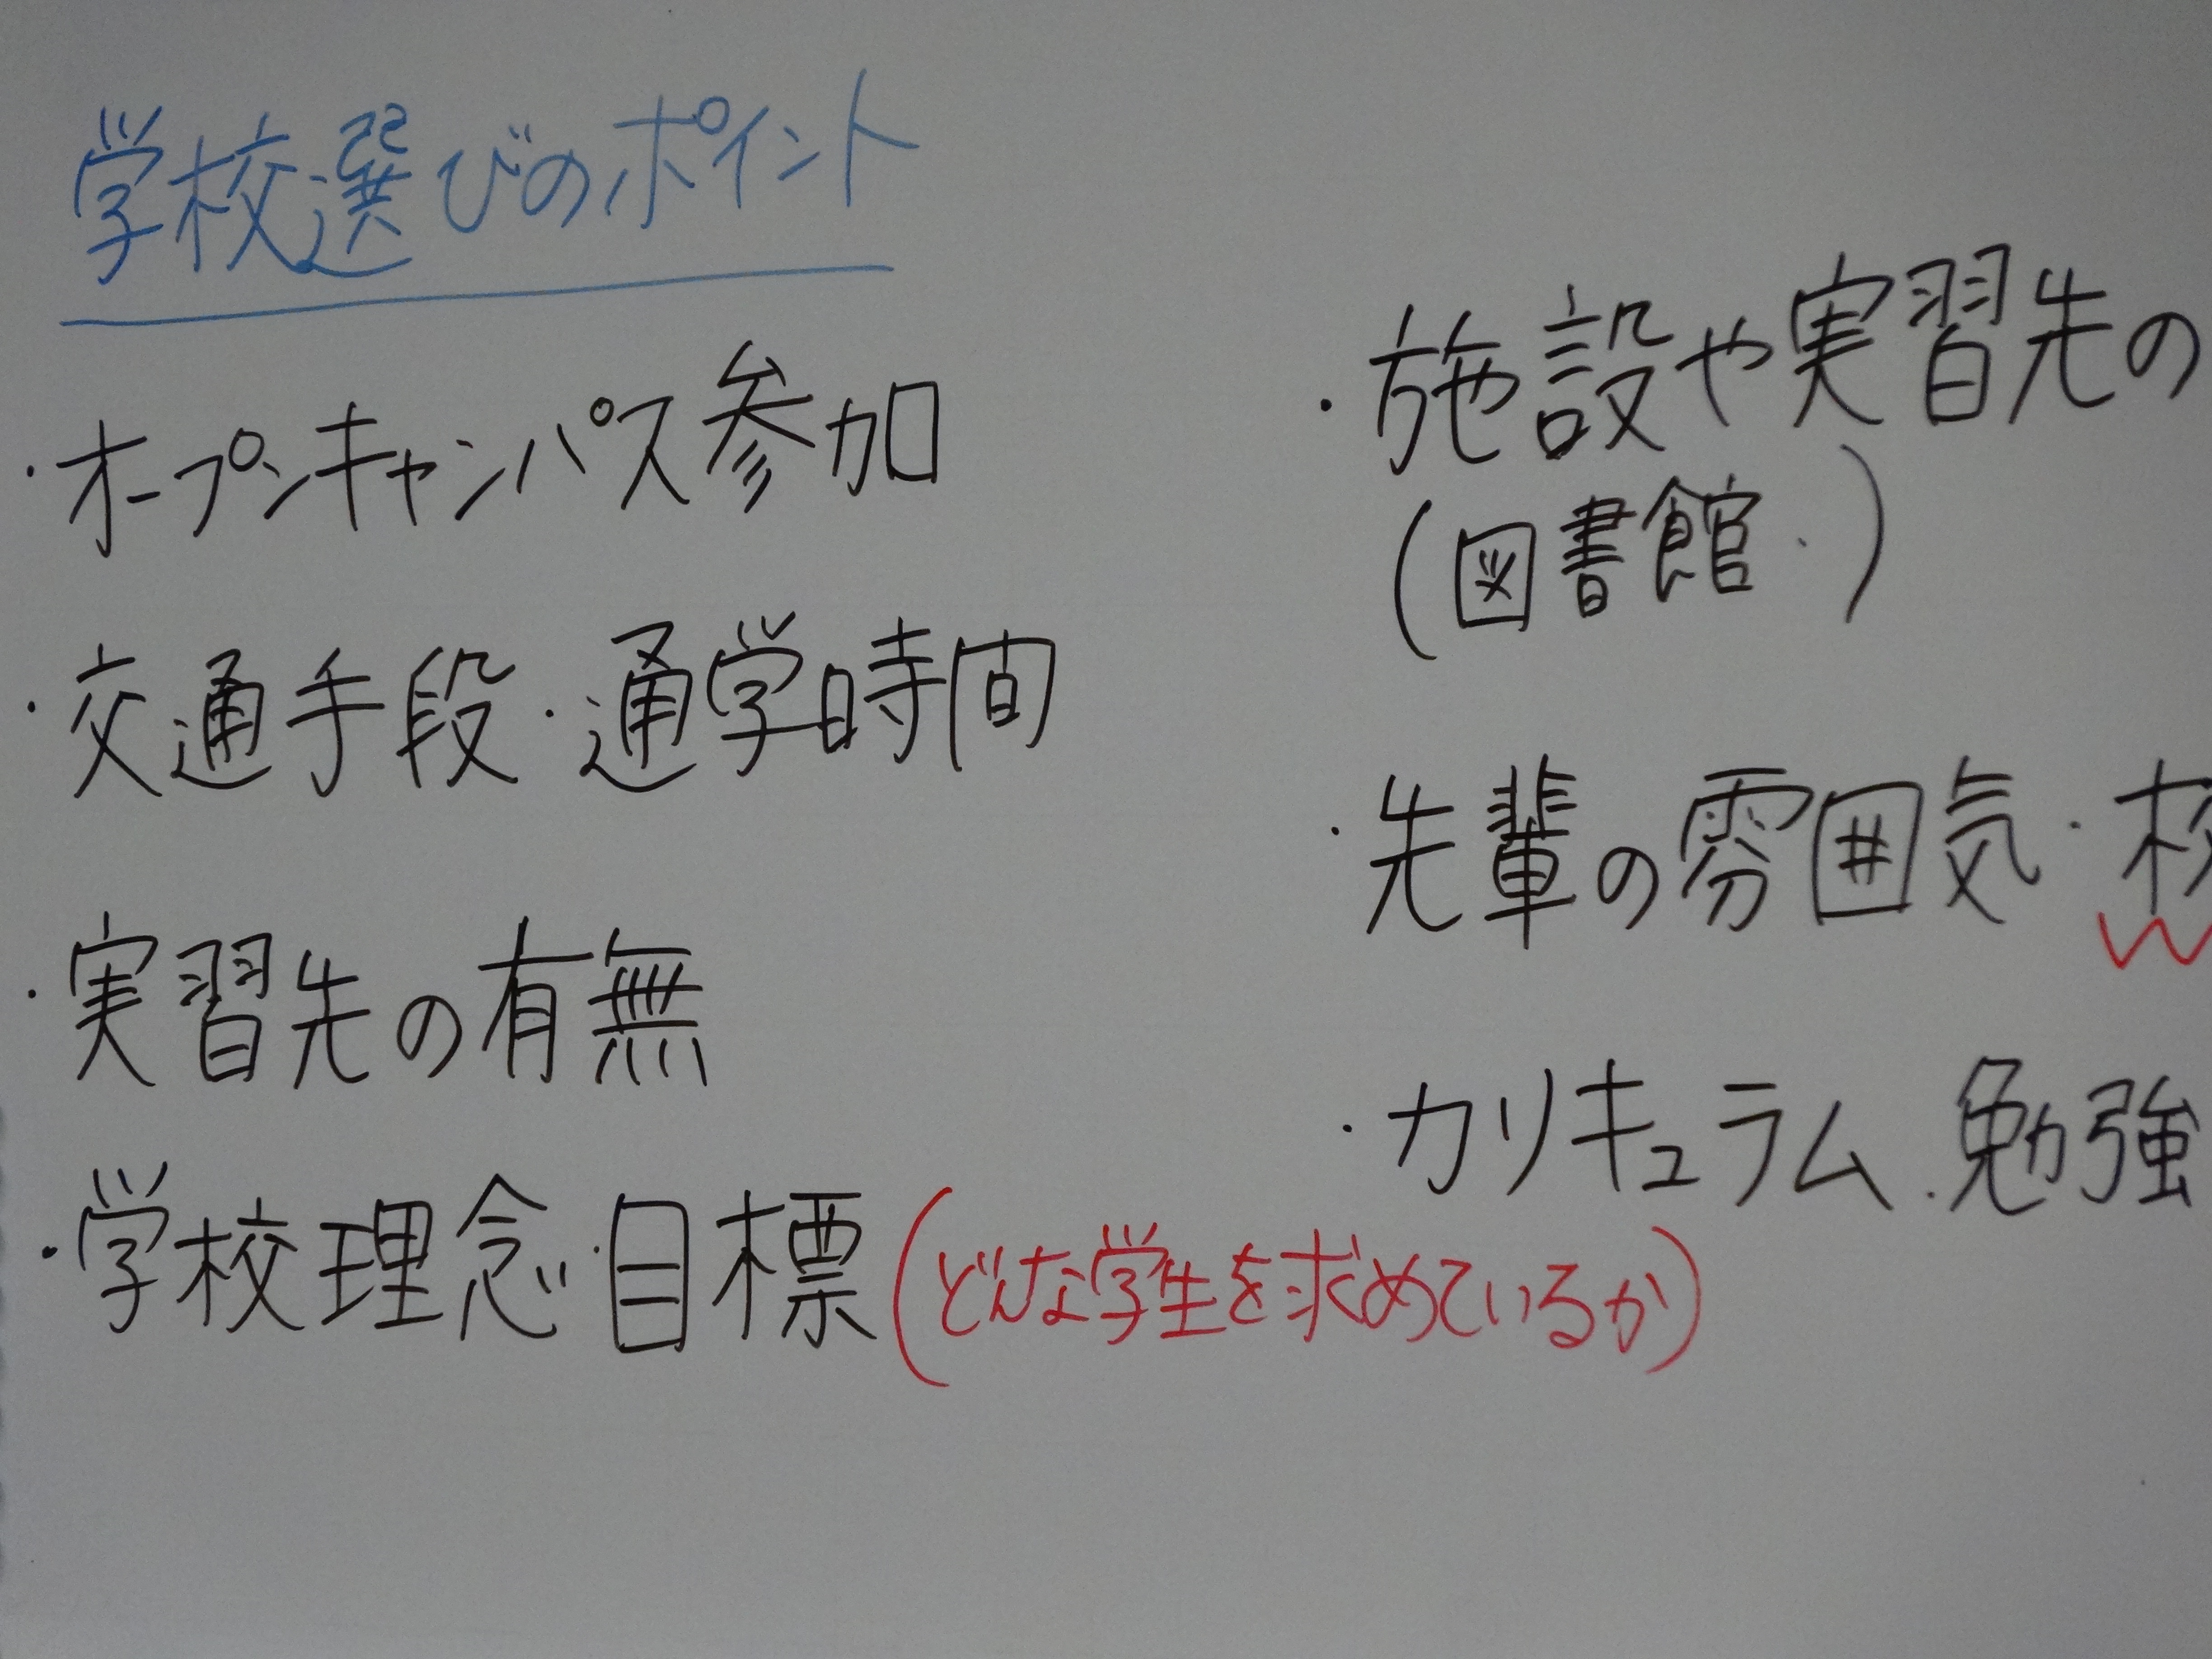 学校選びのポイント
・オープンキャンパス参加
・交通手段・通学時間
・実習先の有無
・学校理念・目標(どんな学生を求めているか)
・施設や実習先の
(図書館・)
・先輩の雰囲気・校
・カリキュラム・勉強